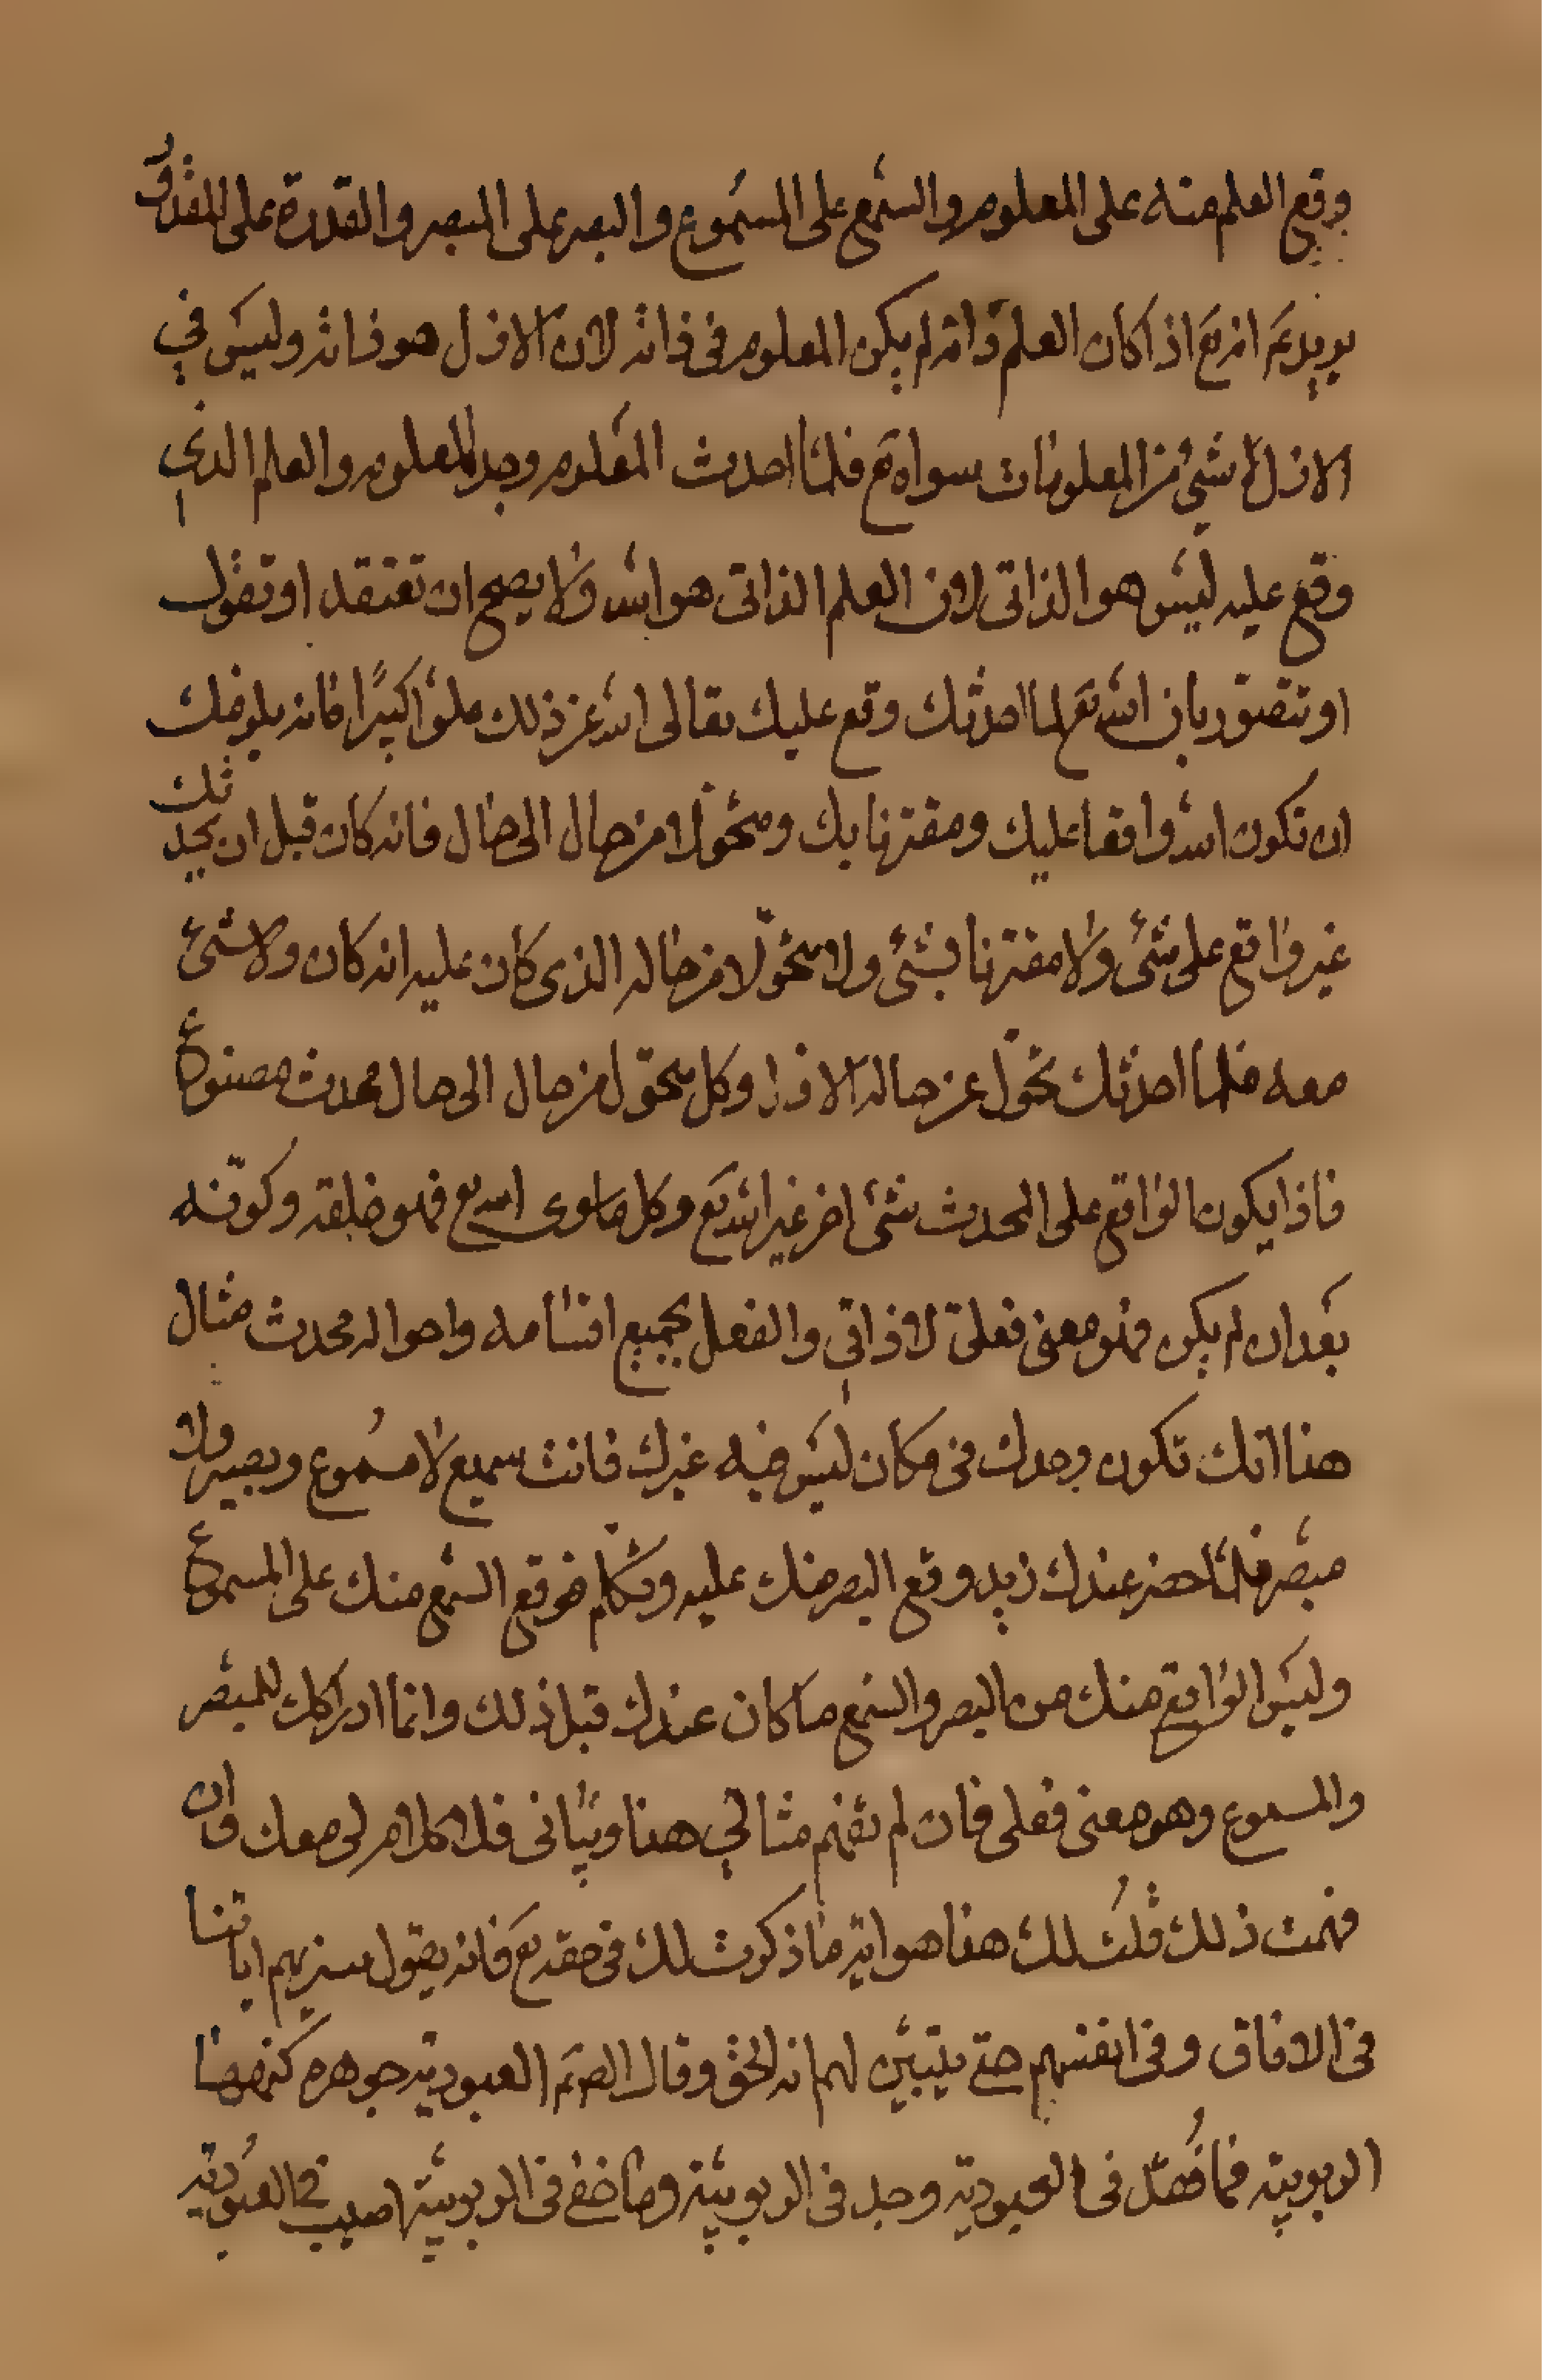 وقع العلم منه على المعلوم والسّمع على المسمُوع والبصر على المبصر والقدرة على المقدُور
يريد عَ انه تعَ اذا كان العلم ذاته لم يكن المعلوم فى ذاته لان الازل هو ذاته وليسَ في
الازل شئ من المعلومات سواه تع فلمّا احدث المعلوم وجد المعلوم والعلم الذي
وقع عليه ليس هو الذاتى لان العلم الذاتى هو الله ولا يصح ان تعتقد او تقول
او تتصوّر بان الله تعَ لما احدثك وقع عليك تعالى الله عن ذلك علوّا كبيرًا فانه يلزمك
ان تكون الله واقعا عليك ومقترنا بك ومتحوّلا من حال الى حال فانه كان قبل ان يحدثك
غير واقع على شئ ولا مقترنا بشئ ولا متحوّلا من حاله الذى كان عليه انه كان ولا شئ
معه فلمّا احدثك تحوّل عن حاله الازل وكل متحوّل من حال الى حال محدث مصنوع
فاذا يكون الواقع على المحدث شئ اخر غير الله تعَ وكل ما سوى الله تع فهو خلقه وكوّنه
بعَد ان لم يكن فهو معنى فعلىّ لا ذاتي والفعل بجميع اقسامه واحواله محدث مثال
هذا انك تكون وحدك فى مكان ليسَ فيه غيرك فانت سميع ولا مسمُوع وبصير ولا
مبصَر فلمّا حضر عندك زيد وقع البصر منك عليه وتكلّم فوقع السّمع منك على المسموع
وليسَ الواقع منك من البصر والسّمع ما كان عندك قبل ذلك وانما ادراكك للمبصَر
والمسموع وهو معنى فعلى فان لم تفهم مثالي هذا وبيانى فلا كلام لى معك وان
فهمت ذلك قلتُ لك هذا هو اية ما ذكرت لك فى حقه تعَ فانه يقول سنريهم اياتنا
فى الافاق وفى انفسهم حتى يتبيّن لهم انه الحق وقال الصّ عَ العبودية جوهرة كنهها
الربوبية فما فُقد فى العبودية وجد فى الربوبيّة وما خفى فى الربوبيّة اصيب فى العبُودية